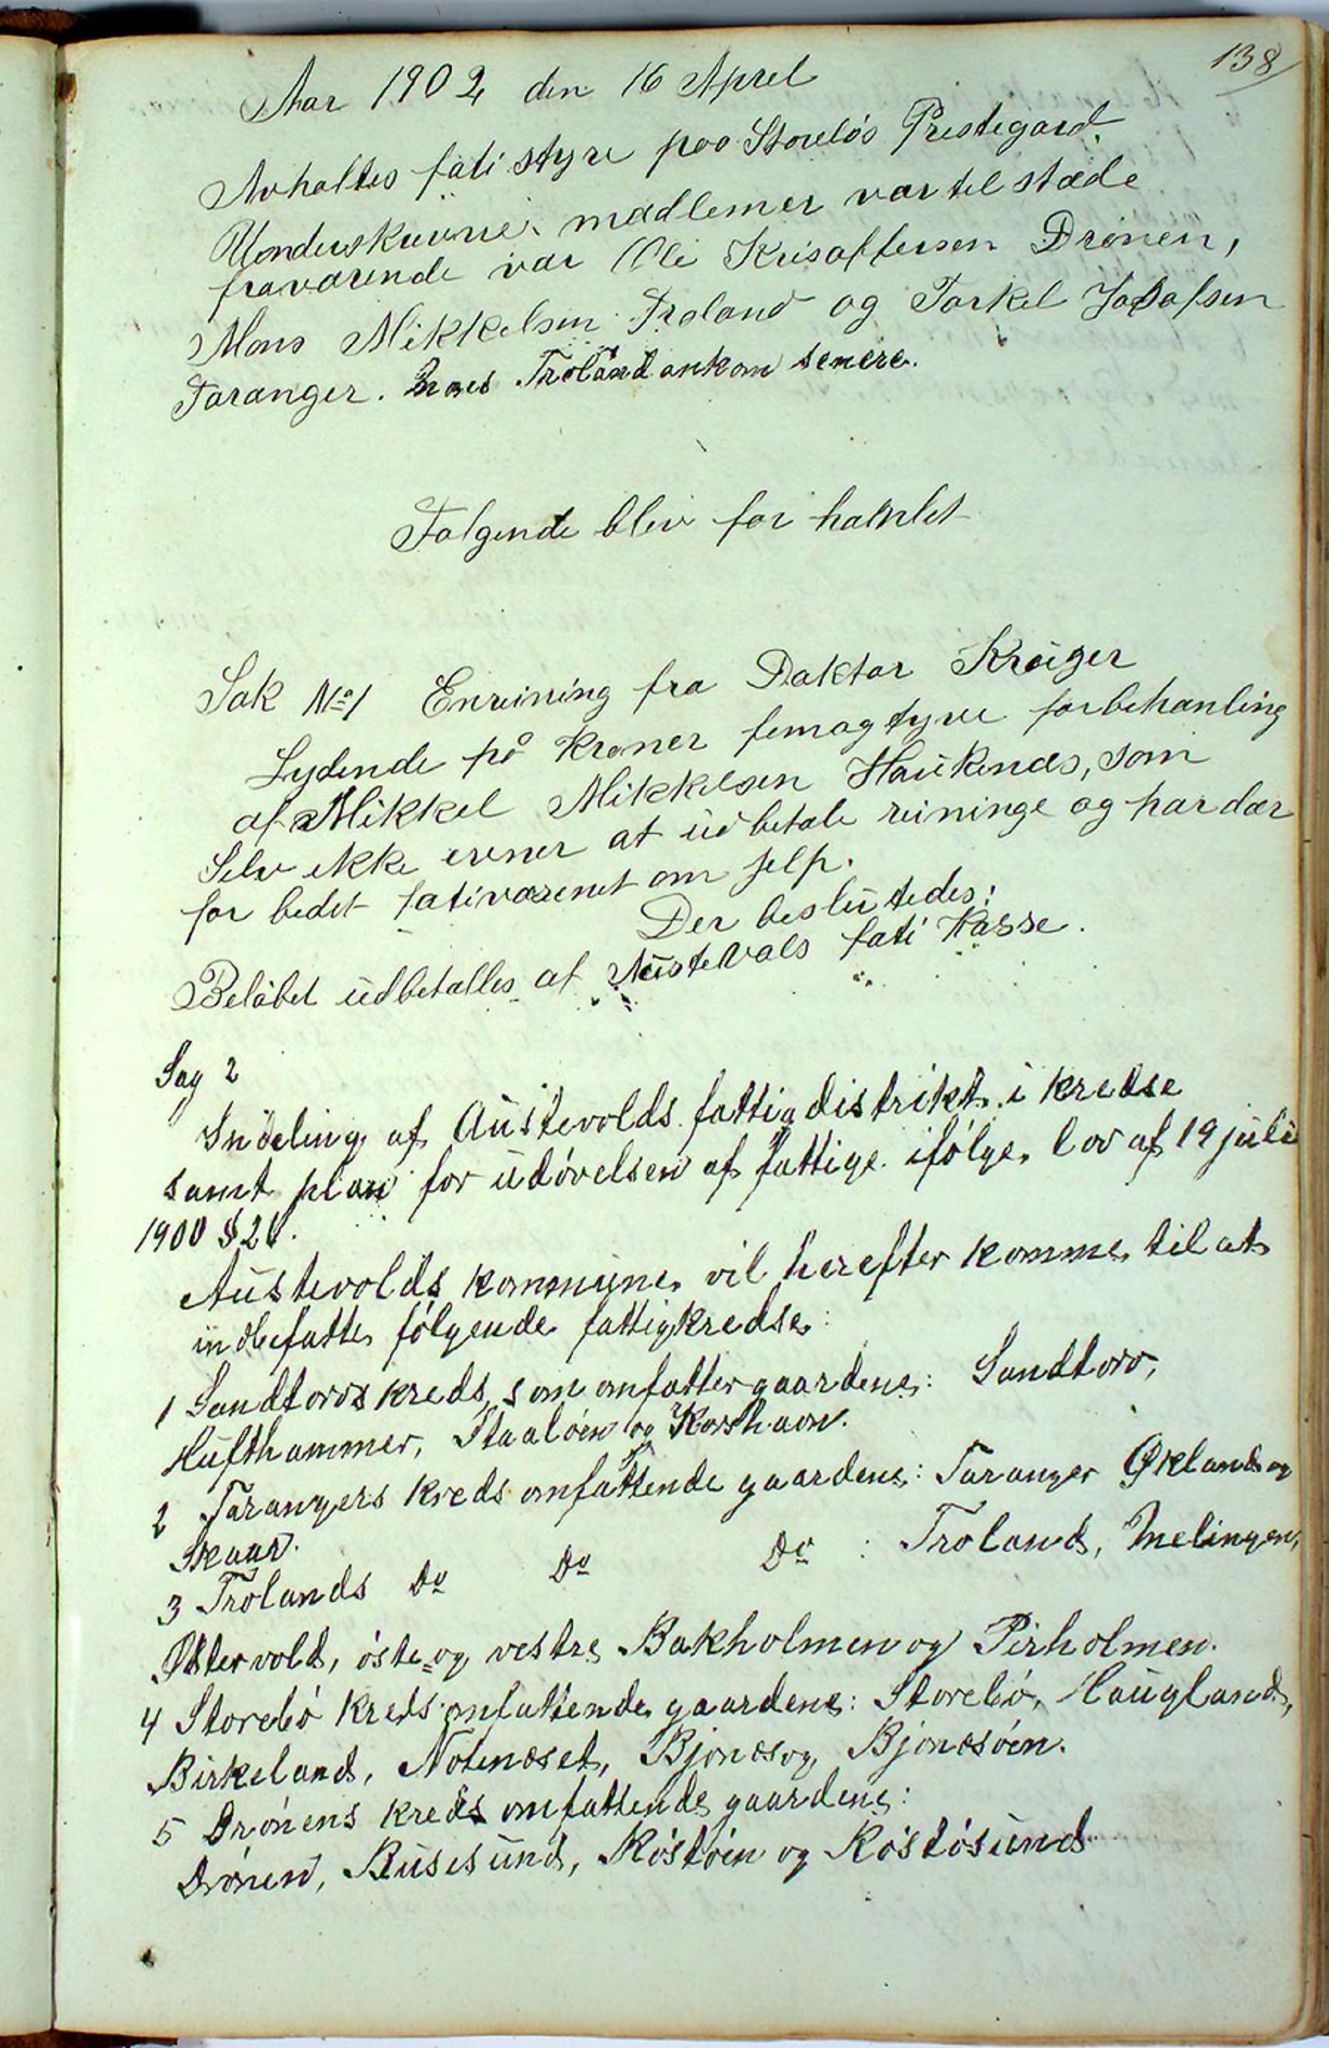 138
Aar 1902 den 16 Aprel
Avholtes fati styre paa Storebøs Prestegard.
Underskrevne medlemer var til stæde
fraværende var Ole Kristoffersen Drønen,
Mons Mikkelsen Troland og Torkel Jakobsen
Taranger. Mons Troland ankom senere.
Følgende blev for hanlet
Sak No 1 Enreining fra Doktor Krüger
Lydende på Kroner femogtyve forbehanling
af Mikkel Mikkelsen Haukenæs, som
Selv ikke evner at udbetale reininge og har dær
for bedet fativæsenet om jelp.
Der beslutedes:
Beløbet udbetalles af Austevols fati Kasse.
Sag 2
Indeling af Austevolds fattigdistrikt i kredse
samt plan for udøvelsen af fattige ifølge lov af 19 juli
1900 § 20.
Austevolds kommune vil herefter komme til at
indbefatte følgende fattigkredse:
1 Sandtorvs kreds, som omfatter gaardene: Sandtorv,
Hufthammer, Staaløen og Korshavn.
2 Tarangers kreds omfattende gaardene: Taranger Økland og
Skaar.
3 Trolands Do Do Do : Troland, Melingen,
Østervold, øste og vestre Bakholmen og Pirholmen.
4 Storebø kreds omfattende gaardene: Storebø, Haugland,
Birkeland, Notenæset, Bjonæs og Bjonæsøen.
5 Drønens kreds omfattende gaardene:
Drønen, Busesund, Røstøen og Røstøsund